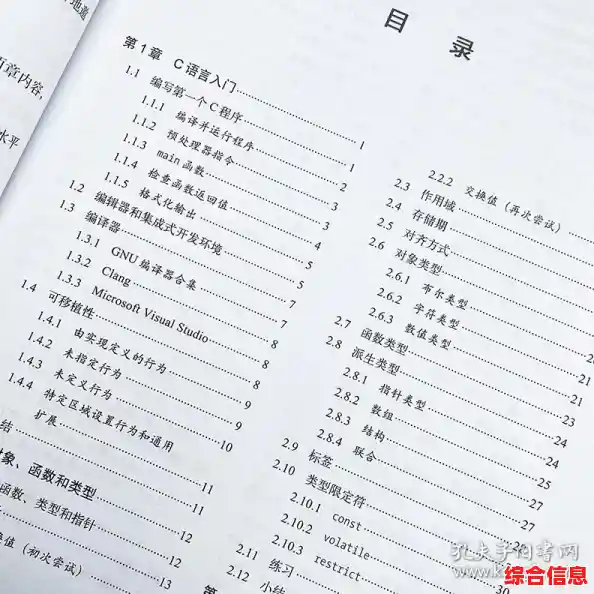 地道
章内容,
水平
目 录
第1章 C语言入门 1
1.1 编写第一个C程序 1
1.1.1 编译并运行程序 2
1.1.2 预处理器指令 3
1.1.3 main函数 3
1.1.4 检查函数返回值 4
1.1.5 格式化输出 5
1.2 编辑器和集成式开发环境 5
1.3 编译器 7
1.3.1 GNU编译器合集 7
1.3.2 Clang 8
1.3.3 Microsoft Visual Studio 8
1.4 可移植性 8
1.4.1 由实现定义的行为 9
1.4.2 未指定行为 9
1.4.3 未定义行为 10
1.4.4 特定区域设置行为和通用
扩展 11
结 11
象、函数和类型 12
函数、类型和指针 12
换值(初次尝试) 13
2.2.2 交换值(再次尝试)
2.3 作用域
2.4 存储期
2.5 对齐方式
2.6 对象类型
2.6.1 布尔类型
2.6.2 字符类型
2.6.3 数值类型
2.7 函数类型 21
2.8 派生类型 23
2.8.1 指针类型 24
2.8.2 数组 24
2.8.3 结构 25
2.8.4 联合 27
2.9 标签 27
2.10 类型限定符
2.10.1 const
2.10.2 volatile
2.10.3 restrict
2.11 练习
2.12 小结
第
孔夫子旧书网
综合信息